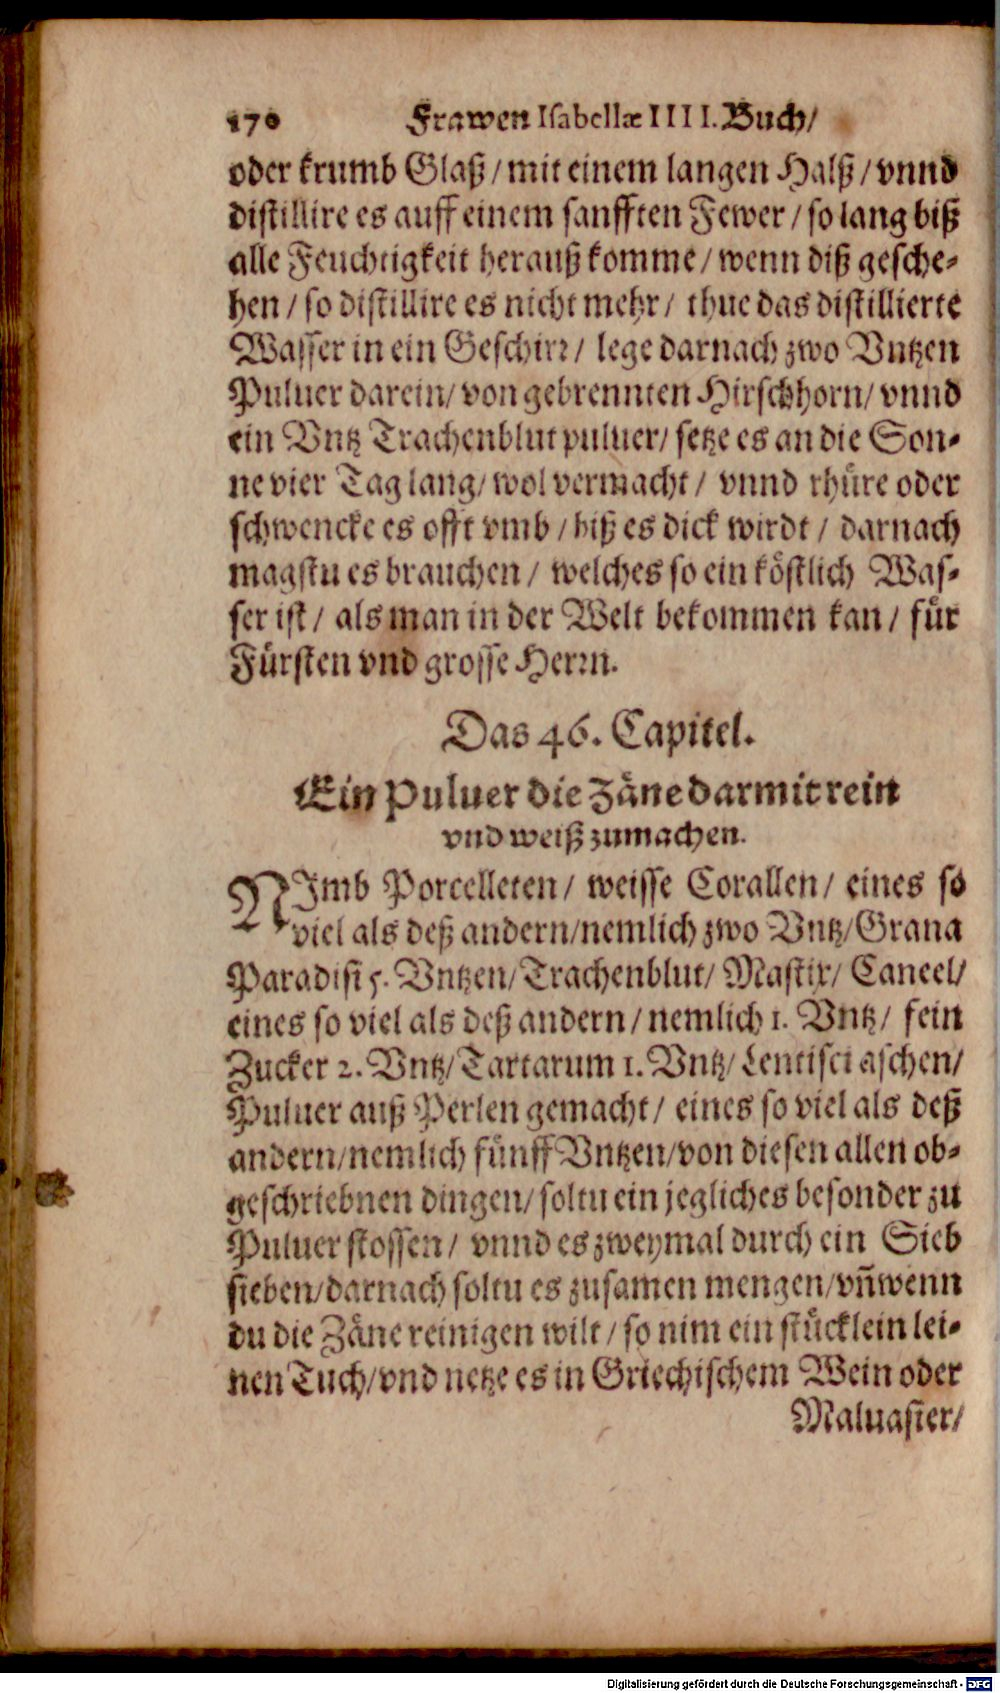 170 Frawen Isabellæ IIII. Buch/
oder krumb Glaß/ mit einem langen Halß/ vnnd
distillire es auff einem sanfften Fewer/ so lang biß
alle Feuchtigkeit herauß komme/ wenn diß gesche-
hen/ so distillire es nicht mehr/ thue das distillierte
Wasser in ein Geschirr/ lege darnach zwo Vntzen
Puluer darein/ von gebrennten Hirschhorn/ vnnd
ein Vntz Trachenblut puluer/ setze es an die Son-
ne vier Tag lang/ wol vermacht/ vnnd rhüre oder
schwencke es offt vmb/ biß es dick wirdt/ darnach
magstu es brauchen/ welches so ein köstlich Was-
ser ist/ als man in der Welt bekommen kan/ für
Fürsten vnd grosse Herrn.
Das 46. Capitel.
Ein Puluer die Zäne darmit rein
vnd weiß zumachen.
NImb Porcelleten/ weisse Corallen/ eines so
viel als deß andern/ nemlich zwo Vntz/ Grana
Paradisi 5. Vntzen/ Trachenblut/ Mastix/ Caneel/
eines so viel als deß andern/ nemlich 1. Vntz/ fein
Zucker 2. Vntz/ Tartarum 1. Vntz/ Lentisci aschen/
Puluer auß Perlen gemacht/ eines so viel als deß
andern/ nemlich fünff Vntzen/ von diesen allen ob-
geschriebnen dingen/ soltu ein jegliches besonder zu
Puluer stossen/ vnnd es zweymal durch ein Sieb
sieben/ darnach soltu es zusamen mengen/ vñ wenn
du die Zäne reinigen wilt/ so nim ein stücklein lei-
nen Tuch/ vnd netze es in Griechischem Wein oder
Maluasier/
Digitalisierung gefördert durch die Deutsche Forschungsgemeinschaft - DFG